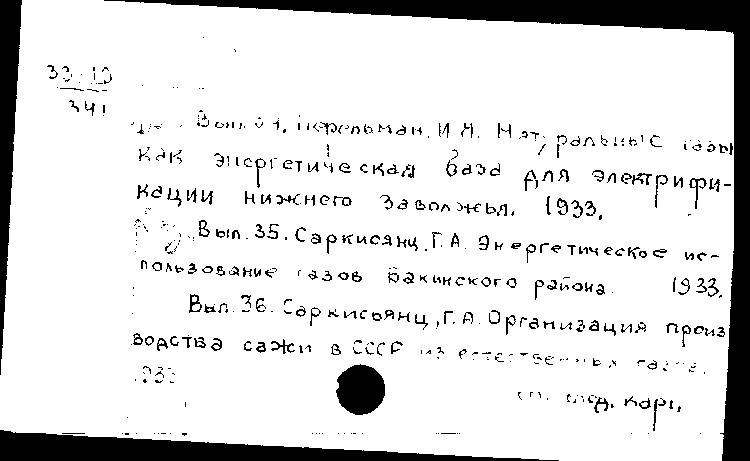 33-13
341
Вып. 34. Перельман, И.Я. Натуральные газы
как энергетическая база для электрифи-
кации нижнего Заволжья. 1933.
Вып. 35. Саркисянц, Г.А. Энергетическое ис-
пользование газов Бакинского района. 1933.
Вып. 36. Саркисьянц, Г.А. Организация произ
водства сажи в СССР из естественных газов.
1933
см. след. карт.